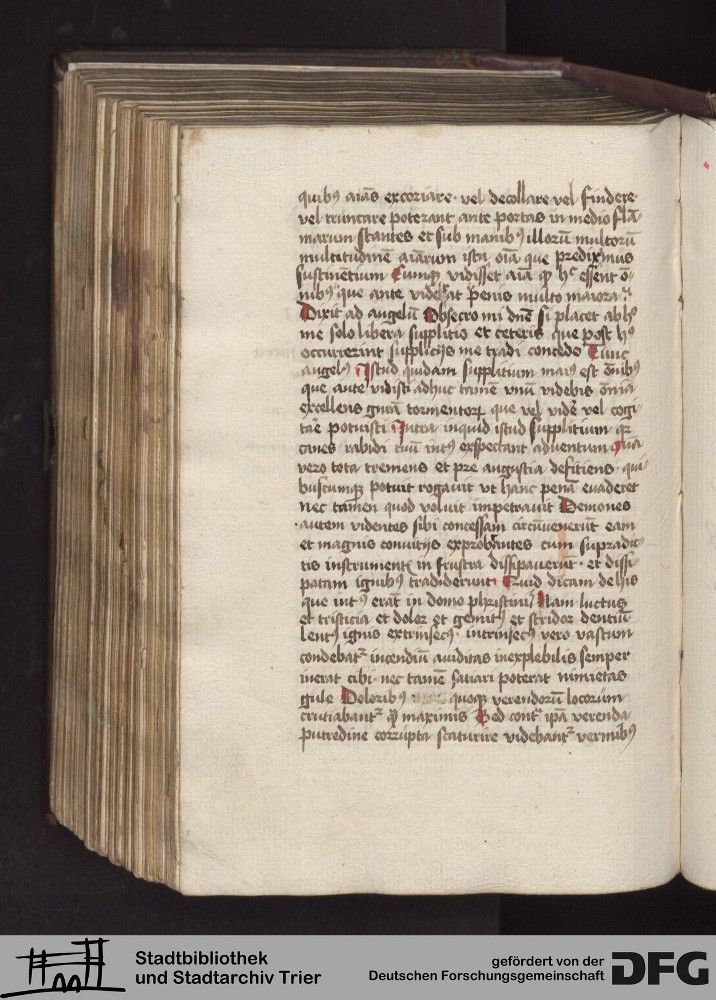 quibꝰ aīas excoriare · vel decollare vel findere
vel truncare poterant ante portas in medio flā-
marum stantes et sub manibꝰ illorū multorū
multitudinē aīarum ista oīa que prediximus
sustinentium Cumqꝫ vidisset aīa essent ō-
nibꝰ que ante viderat penis multo maiora
Dixit ad angelū Obsecro mi dnē si placet ab hꝰ
me solo libera supplitio et ceteris que post hꝰ
occurrerint supplicijs me tradi concede Tunc
angelꝰ Istud quidam supplitium maiꝰ est ōnibꝰ
que ante vidisti adhuc tamē vnū videbis omīa
excellens tormentoꝝ que vel videre vel cogi-
tare potuisti Intra inquid istud supplitium qꝛ
canes rabidi tuū intꝰ exspectant adventum
vero tota tremens et pre angustia defitiens · qui-
buscumqꝫ potuit rogauit vt hanc penā evaderet
nec tamen quod voluit impetrauit Demones
autem videntes sibi concessam circūvenerūt eam
et magnis convitijs exprobantes cum supradic-
tis instrumentꝭ in frustra dissipaverūt · et dissi-
patam ignibꝰ tradiderunt Quid dicam de his
que intꝰ erāt in domo phristini Nam luctus
et tristicia et dolor et gemitꝰ et stridor dentiū
lentꝰ ignis extrinsecꝰ · intrinsecꝰ vero vastum
condebatꝛ incendiū auiditas inexplebilis semper
inerat cibi · nec tamē satiari poterat nimietas
gule Doloribꝰ quoqꝫ verendorū locorum
crutiabantꝛ maximis Sed ipā verenda
putredine corrupta scaturire videbantꝛ vermibꝰ
Stadtbibliothek
und Stadtarchiv Trier
gefördert von der
Deutschen Forschungsgemeinschaft
DFG